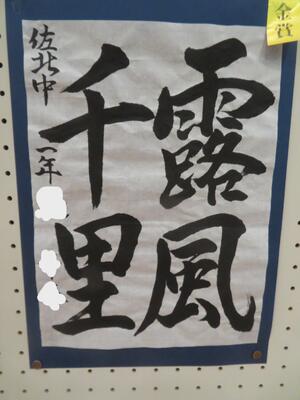 金賞
露風
千里
佐北中 一年